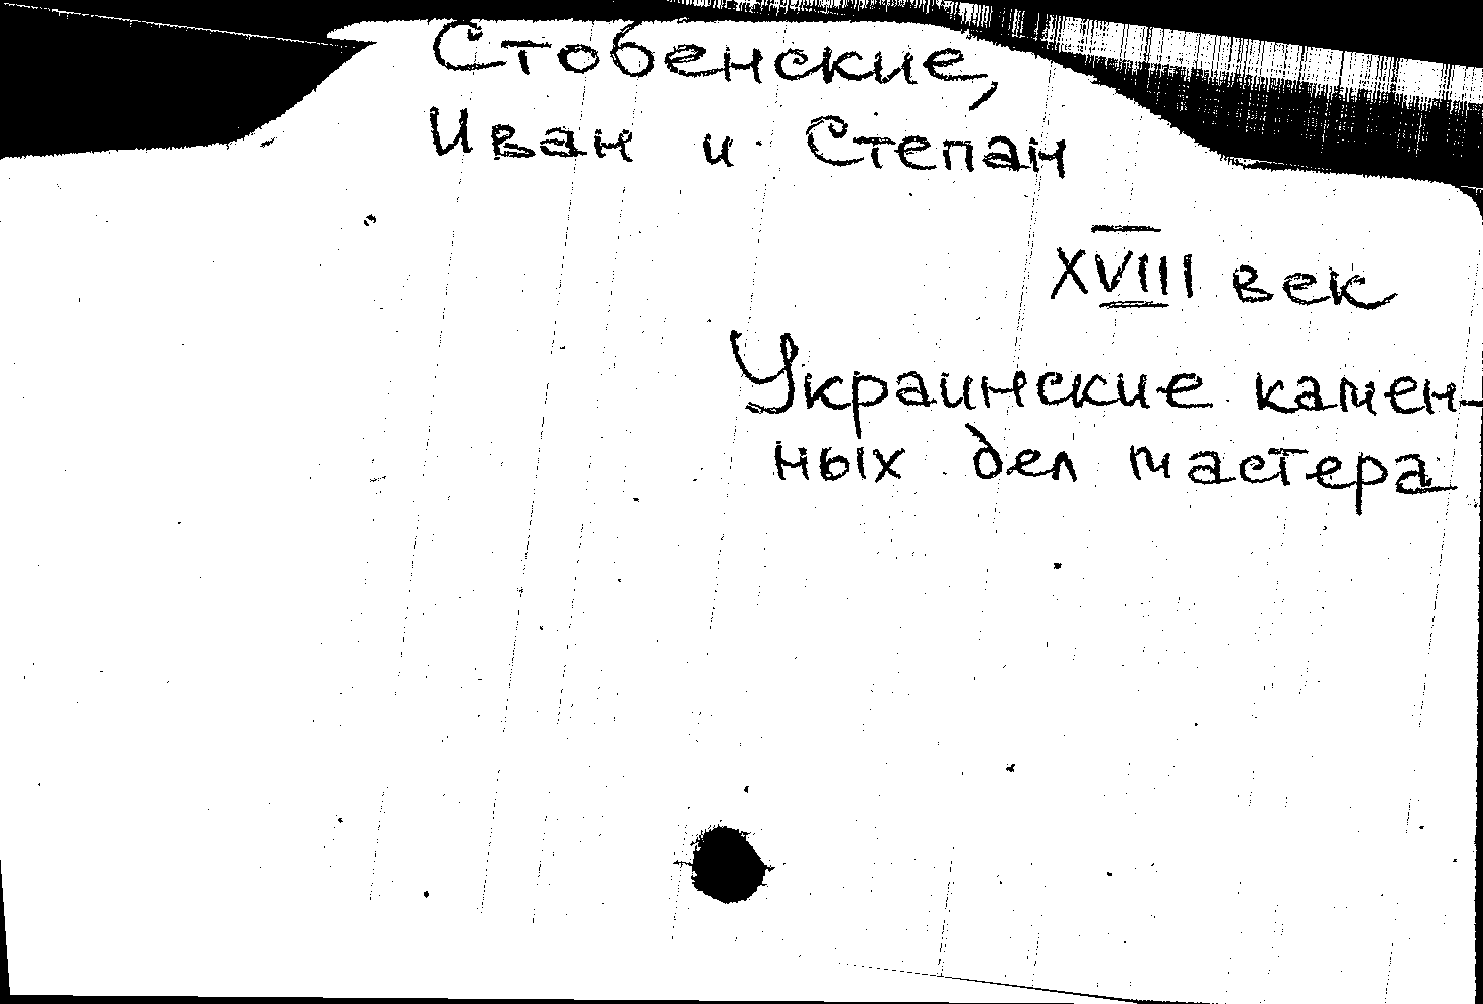 Стобенские,
Иван и Степан
XVIII век
Украинские камен-
ных дел мастера